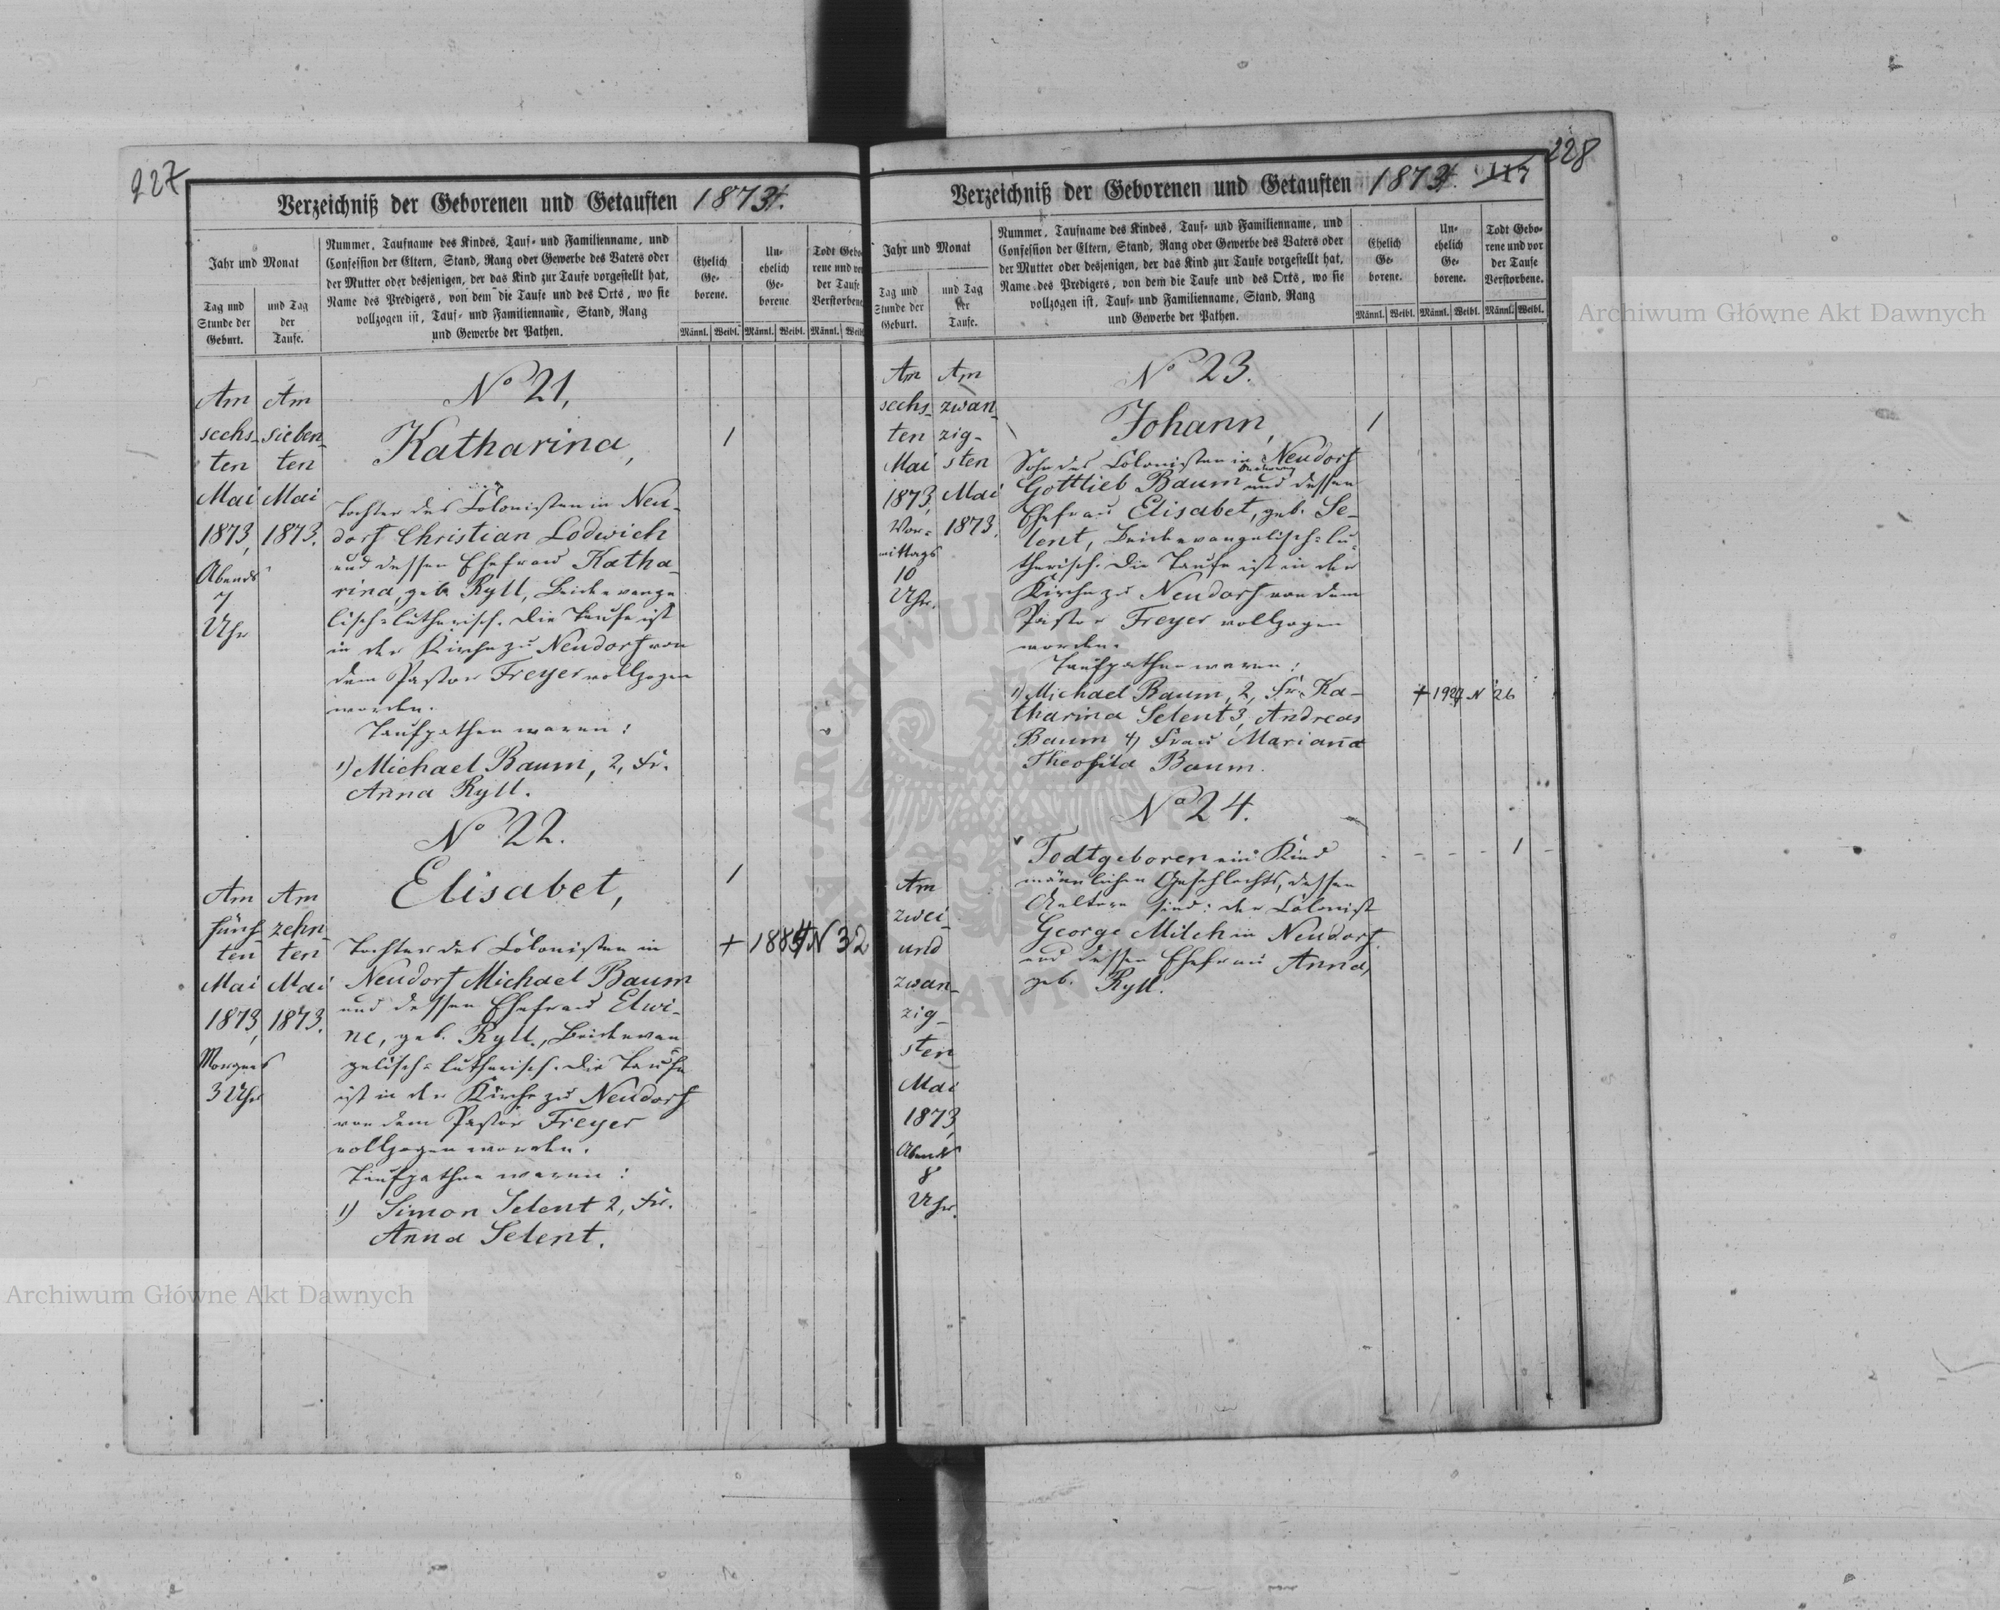 227
Verzeichniß der Geborenen und Getauften 1873.
Jahr und Monat
Tag und
Stunde der
Geburt.
und Tag
der
Taufe.
Nummer, Taufname des Kindes, Tauf- und Familienname, und
Confession der Eltern, Stand, Rang oder Gewerbe des Vaters oder
der Mutter oder desjenigen, der das Kind zur Taufe vorgestellt hat,
Name des Predigers, von dem die Taufe und des Orts, wo sie
vollzogen ist, Tauf- und Familienname, Stand, Rang
und Gewerbe der Pathen.
Ehelich
Ge-
borene.
Un-
ehelich
Ge-
borene
Todt Gebo-
rene und vor
der Taufe
Verstorbene
Männl. Weibl. Männl. Weibl. Männl. Weibl.
Am
sechs-
ten
Mai
1873,
Abends
7
Uhr
Am
sieben-
ten
Mai
1873.
No 21,
Katharina,
1
Tochter des Colonisten in Neu-
dorf Christian Lodwich
und dessen Ehefrau Katha-
rina, geb. Ryll, Beide evange
lisch=lutherisch. Die Taufe ist
in der Kirche zu Neudorf von
dem Pastor Freyer vollzogen
worden.
Taufpathen waren:
1) Michael Baum, 2, Fr.
Anna Ryll.
Am
fünf-
ten
Mai
1873,
Morgens
3 Uhr
Am
zehn-
ten
Mai
1873.
No 22.
Elisabet,
1
Tochter des Colonisten in
+ 1884 N 32
Neudorf Michael Baum
und dessen Ehefrau Elwi-
ne, geb. Ryll, Beide evan
gelisch=lutherisch. Die Taufe
ist in der Kirche zu Neudorf
von dem Pastor Freyer
vollzogen worden.
Taufpathen waren:
1) Simon Selent 2, Fr.
Anna Selent.
228
Verzeichniß der Geborenen und Getauften 1873.
Jahr und Monat
Tag und
Stunde der
Geburt.
und Tag
der
Taufe.
Nummer, Taufname des Kindes, Tauf- und Familienname, und
Confession der Eltern, Stand, Rang oder Gewerbe des Vaters oder
der Mutter oder desjenigen, der das Kind zur Taufe vorgestellt hat,
Name des Predigers, von dem die Taufe und des Orts, wo sie
vollzogen ist, Tauf- und Familienname, Stand, Rang
und Gewerbe der Pathen.
Ehelich
Ge-
borene.
Un-
ehelich
Ge-
borene.
Todt Gebo-
rene und vor
der Taufe
Verstorbene.
Männl. Weibl. Männl. Weibl. Männl. Weibl.
Am
sechs-
ten
Mai
1873,
Vor-
mittags
10
Uhr.
Am
zwan-
zig-
sten
Mai
1873.
No 23.
Johann,
1
Sohn des Colonisten in Neudorf
Gottlieb Baum und dessen
Ehefrau Elisabet, geb. Se-
lent, Beide evangelisch=lu-
therisch. Die Taufe ist in der
Kirche zu Neudorf von dem
Pastor Freyer vollzogen
worden.
Taufpathen waren:
1) Michael Baum, 2, Fr. Ka-
tharina Selent 3, Andreas
Baum 4) Frau Mariana
Theofila Baum.
+ 1927 N 26
Am
zwei-
und
zwan-
zig-
sten
Mai
1873,
Abends
8
Uhr.
No 24.
Todtgeboren ein Kind
- - - - 1 -
männlichen Geschlechts, dessen
Aeltern sind: der Colonist
George Milch in Neudorf
und dessen Ehefrau Anna,
geb. Ryll.
Archiwum Główne Akt Dawnych
Archiwum Główne Akt Dawnych